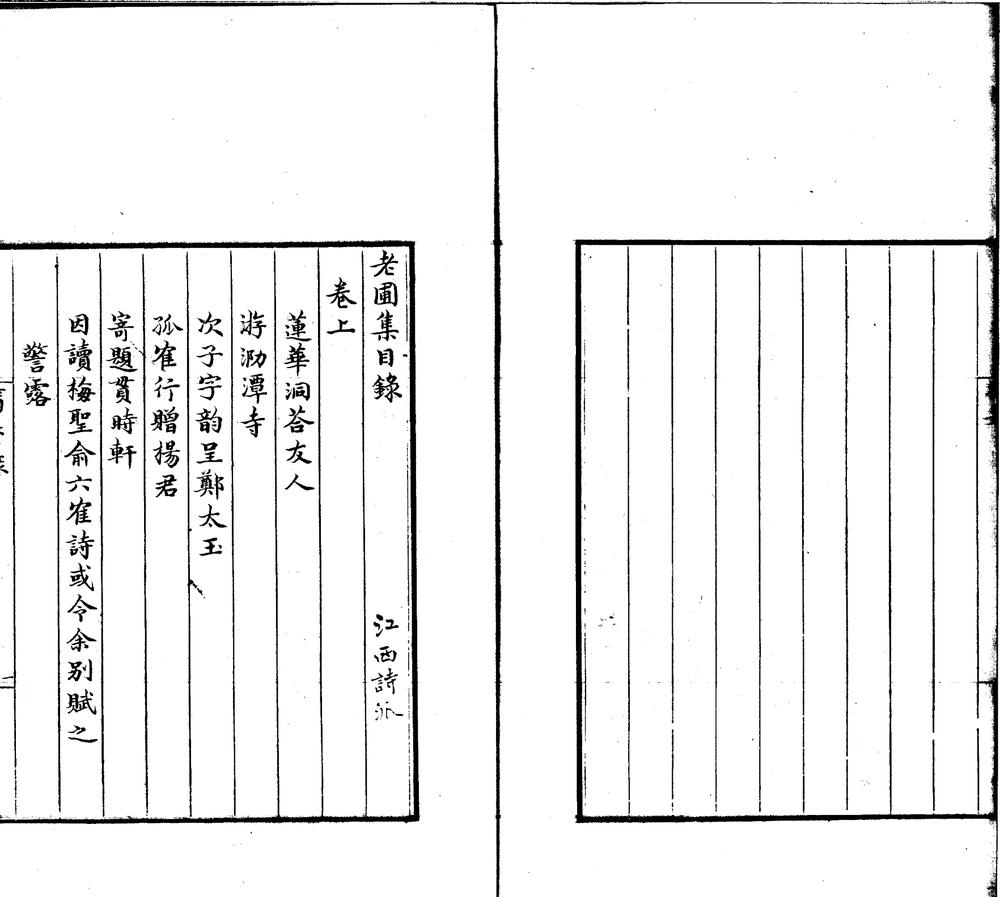 老圃集目錄 江西詩派
卷上
蓮華洞荅友人
游泐潭寺
次子字韵呈鄭太玉
孤隺行贈楊君
寄題貫時軒
因讀梅聖俞六隺詩或令余別賦之
警露